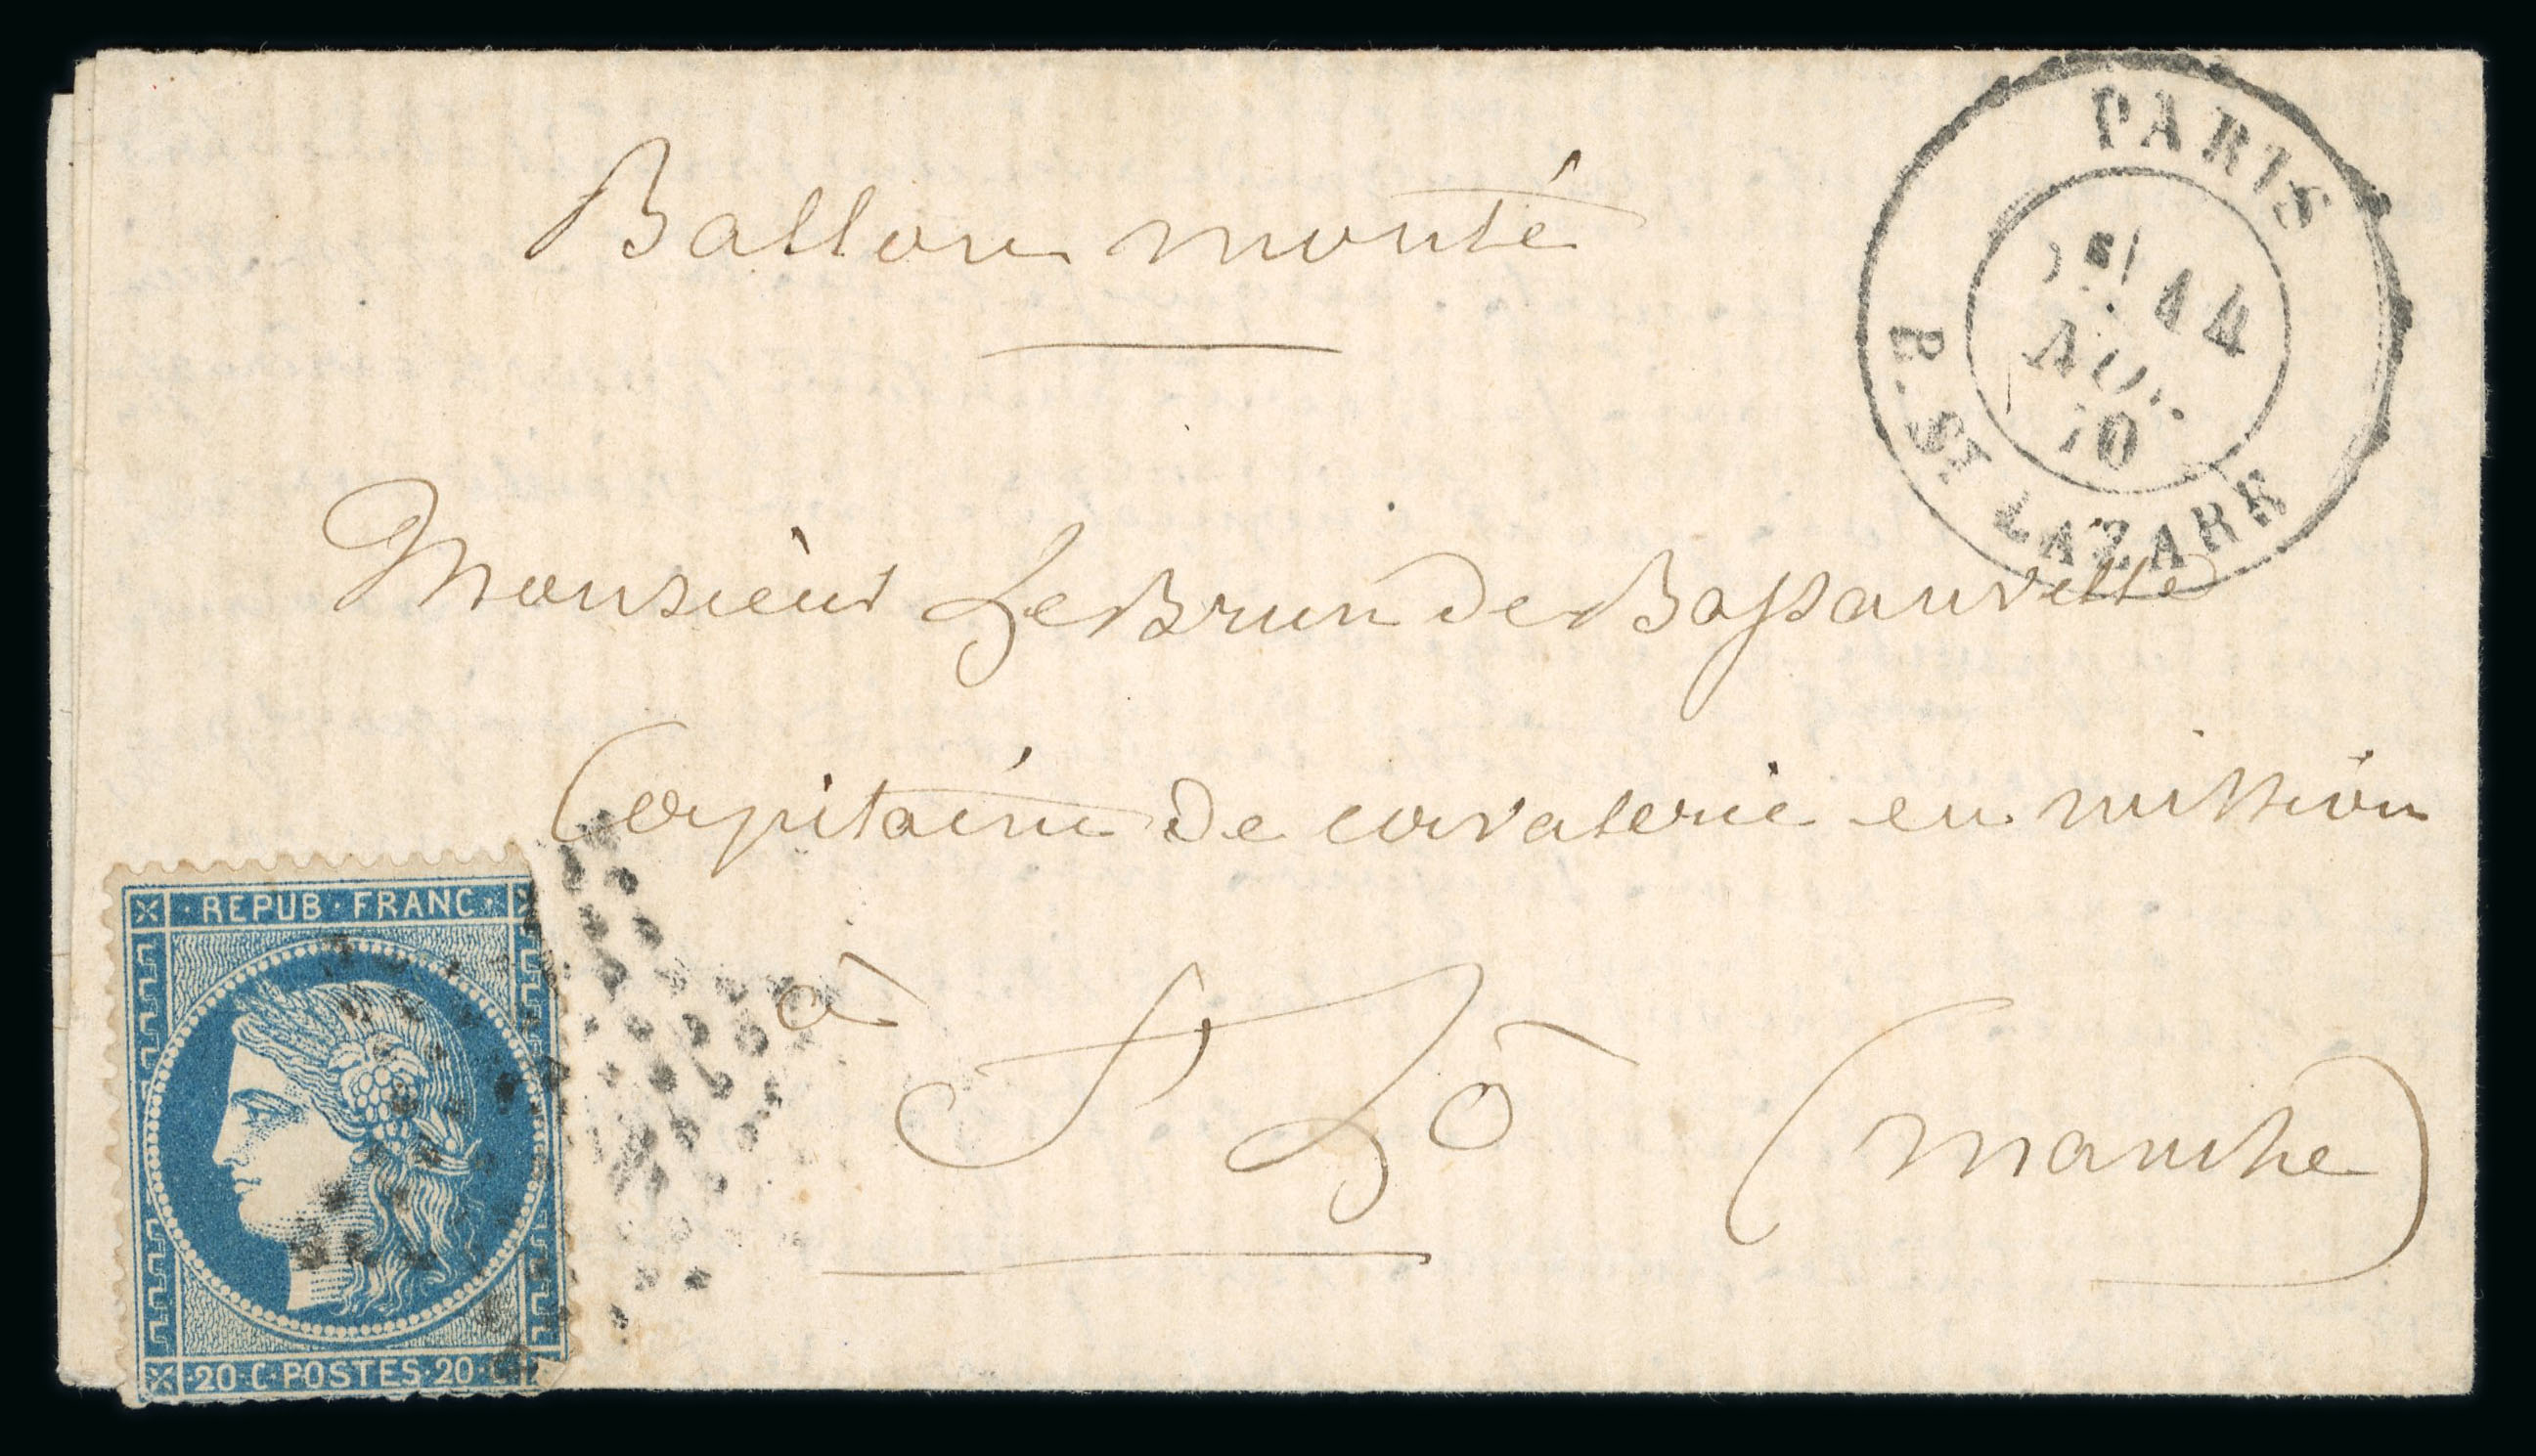 Ballon monté
PARIS
14
NOV.
70
R. St LAZARE
Monsieur Le Brun de Bassauville
Capitaine de cavalerie en mission
à
St Lô (manche)
REPUB · FRANC ·
20 · C · POSTES · 20 · C